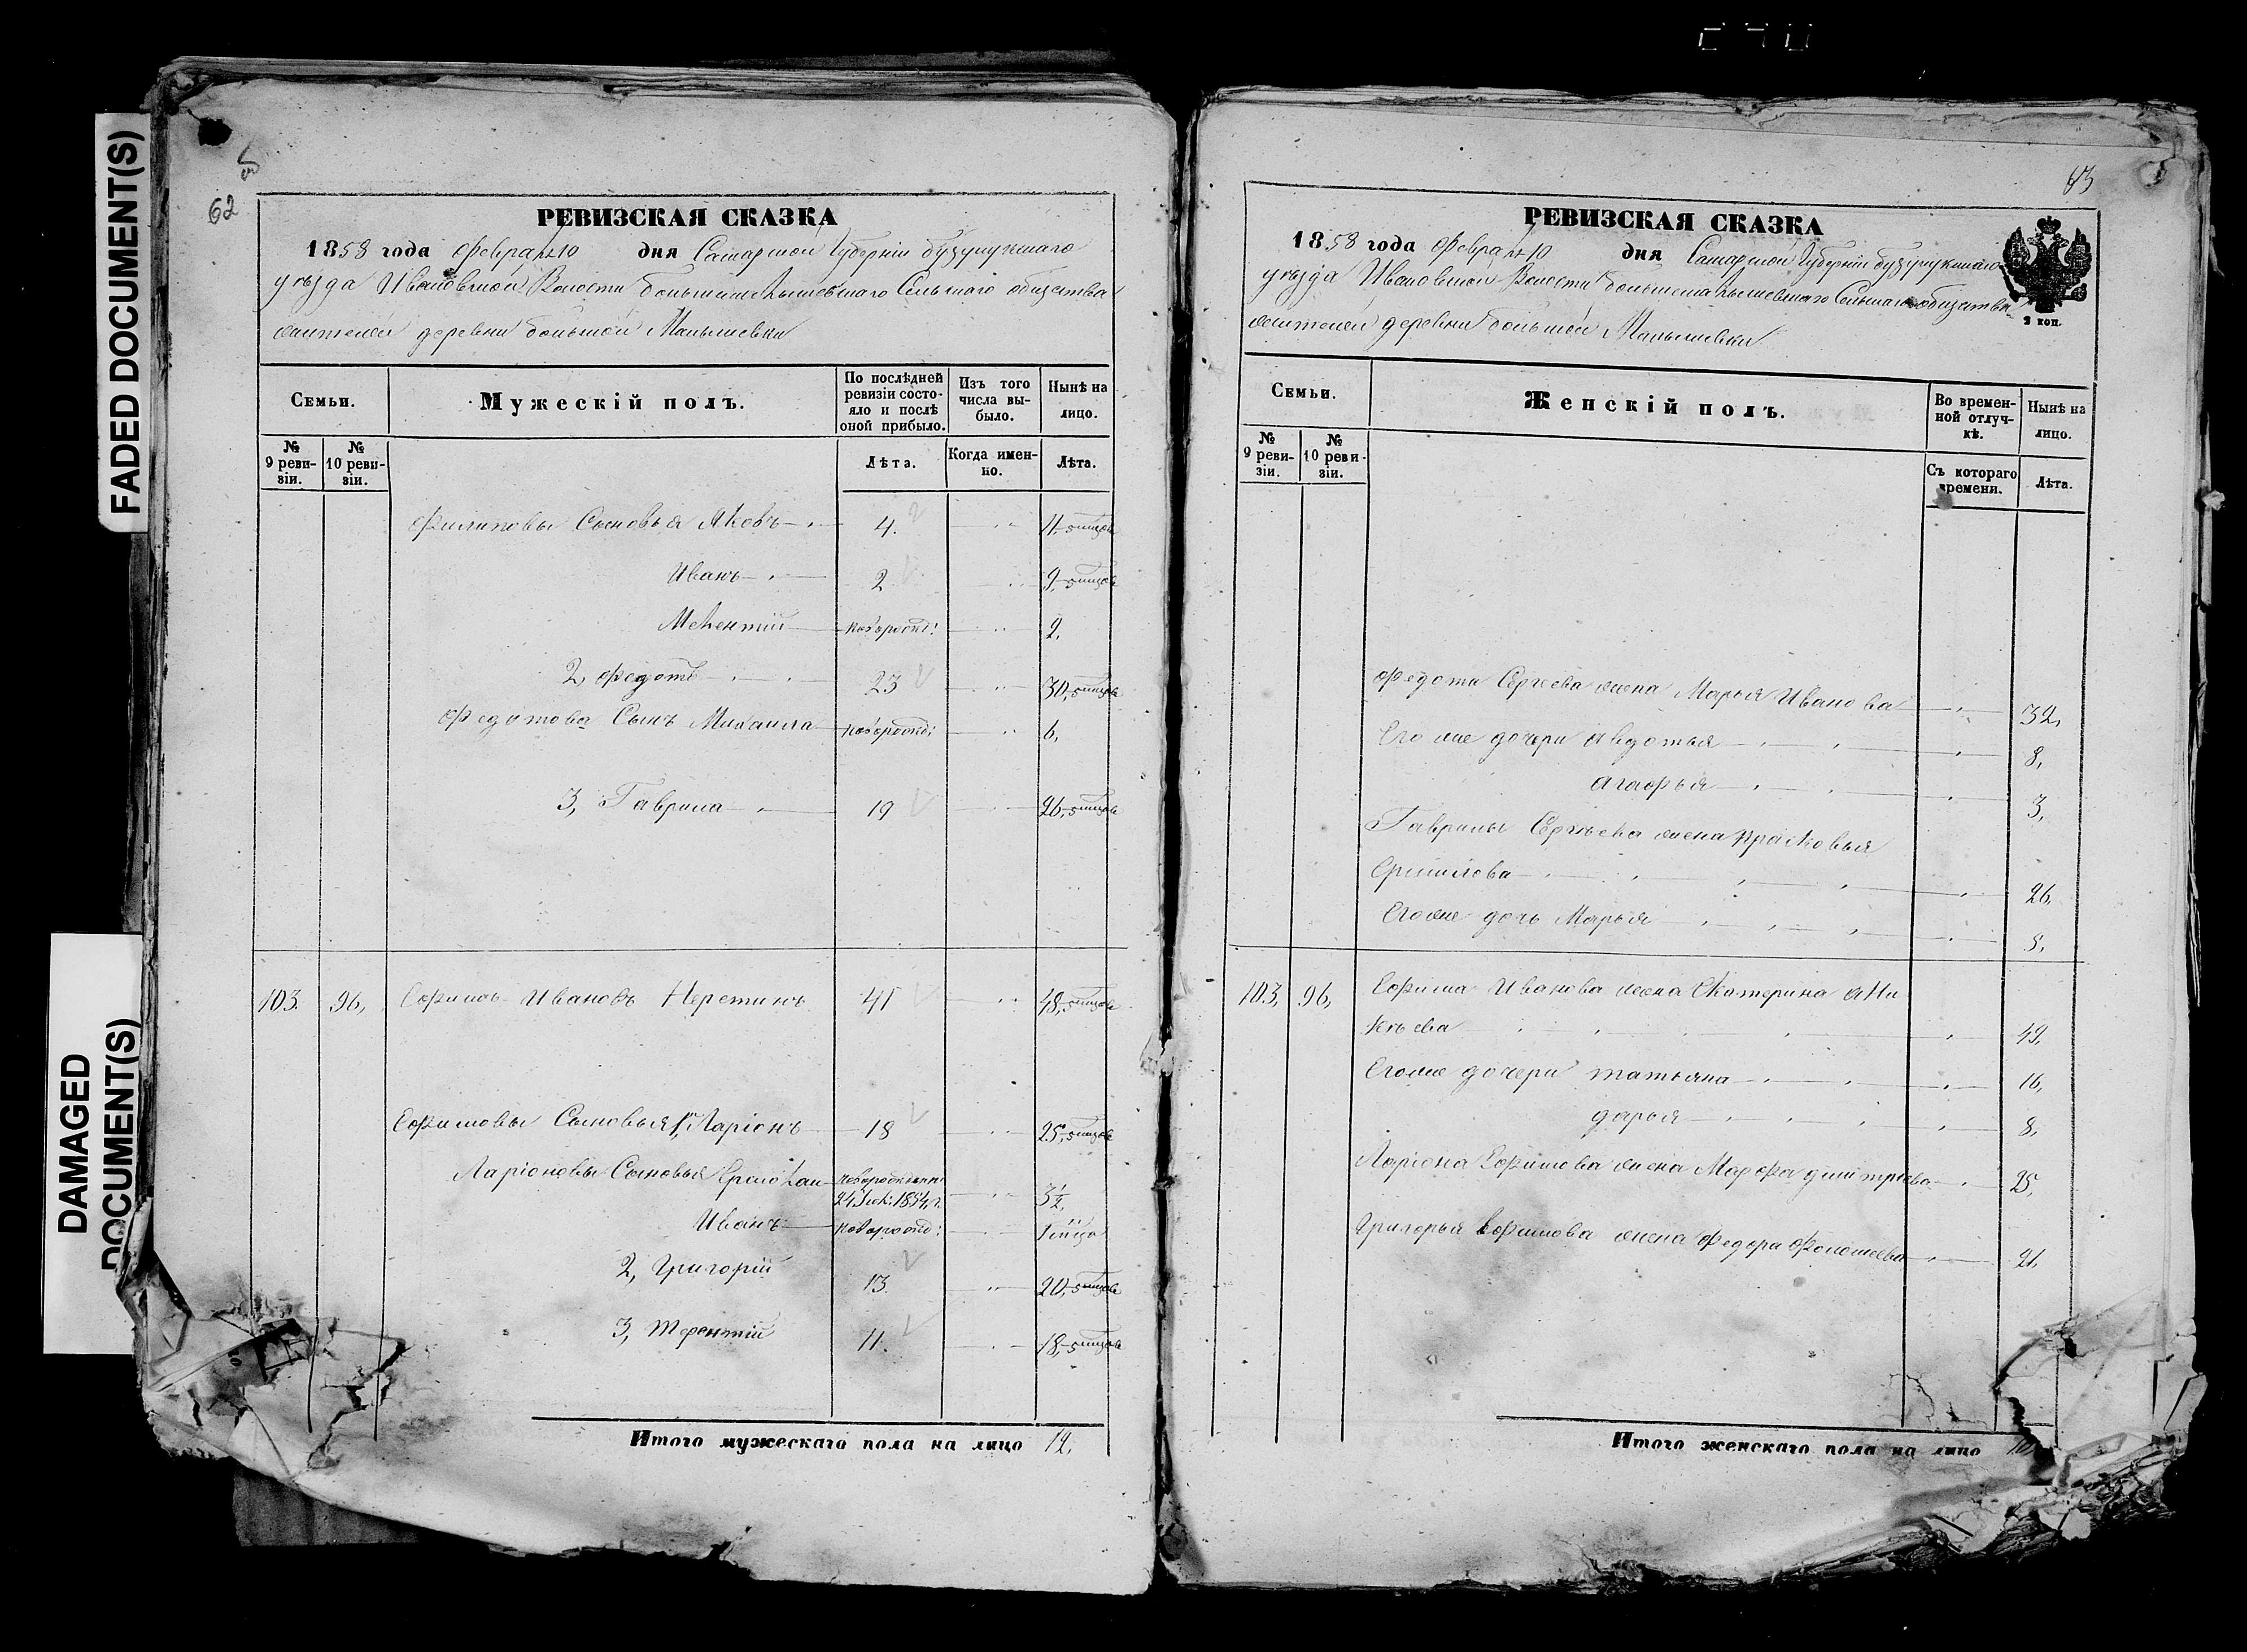 FADED DOCUMENT(S)
DAMAGED
DOCUMENT(S)
62
РЕВИЗСКАЯ СКАЗКА
1858 года Февраля 10 дня Самарской Губерніи бузулукскаго
уѣзда Ивановской Волости большемалышевскаго Сельскаго общества
жителей деревни большой Малышевки
Семьи.
Мужескій полъ.
По послѣдней
ревизіи состо-
яло и послѣ
оной прибыло.
Изъ того
числа вы-
было.
Нынѣ на
лицо.
№
9 реви-
зіи.
№
10 реви-
зіи.
Лѣта.
Когда имен-
но.
Лѣта.
Филиповы Сыновья Яковъ 4. 11
Иванъ 2 9
новорожд: 2.
2, Федотъ 23 30,
Федотова Сынъ Михаила новорожд: 6,
3, Гаврила 19 26,
103. 96, Ефимъ Ивановъ 41 48,
Ефимовы Сыновья 1, Ларіонъ 18 25,
Ларіоновы Сыновья новорожденн:
1854 г. 3½
Иванъ новорожд:
2, Григорій 13. 20,
3, Терентій 11. 18,
Итого мужескаго пола на лицо 12.
63
РЕВИЗСКАЯ СКАЗКА
1858 года Февраля 10 дня Самарской Губерніи бузулукскаго
уѣзда Ивановской Волости большемалышевскаго Сельскаго общества
жителей деревни большой Малышевки
Семьи.
Женскій полъ.
Во времен-
ной отлуч-
кѣ.
Нынѣ на
лицо.
№
9 реви-
зіи.
№
10 реви-
зіи.
Съ котораго
времени.
Лѣта.
Федота Сергѣева жена Марья Иванова 32,
Его же дочери Авдотья 8,
Агафья 3,
Гаврилы Сергѣева жена Прасковья
26,
Его же дочь Марья
103, 96, Ефима Иванова жена Екатерина Ани
кѣева 49,
Его же дочери татьяна 16,
дарья 8,
Ларіона Ефимова жена Марфа дмитріева 25,
Григорья Ефимова жена Федора 21,
Итого женскаго пола на лицо